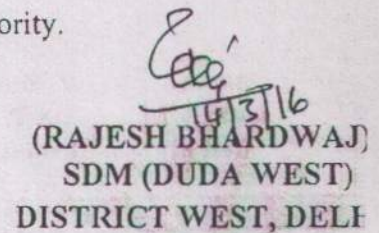 ority.
14/3/16
(RAJESH BHARDWAJ)
SDM (DUDA WEST)
DISTRICT WEST, DELH